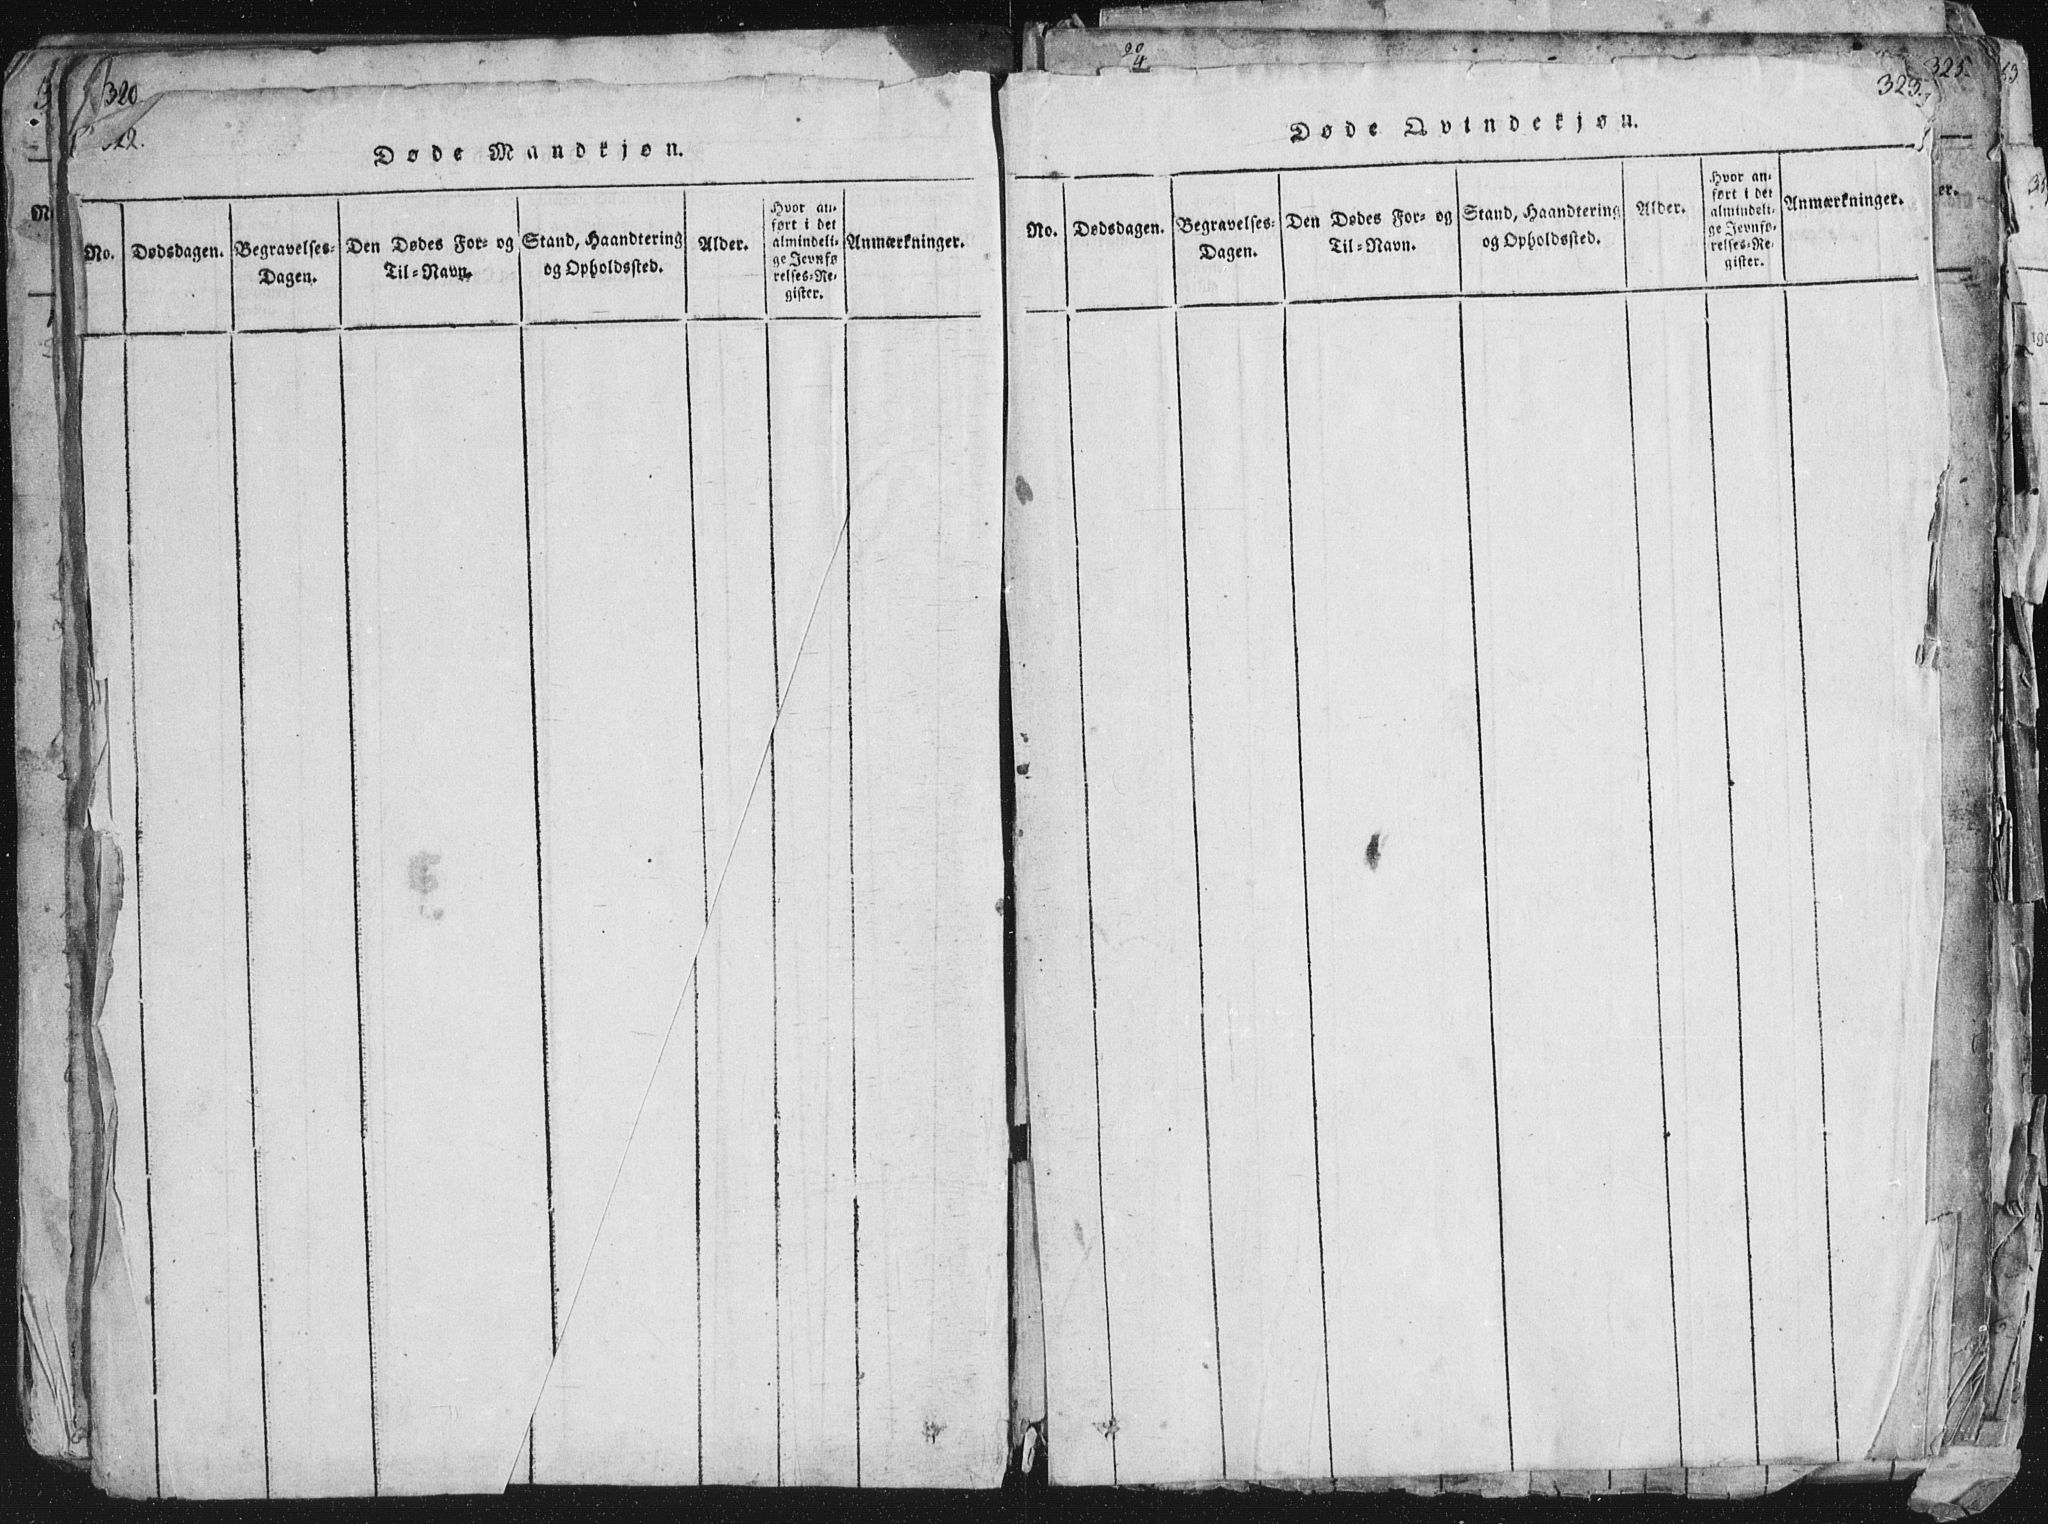 320.
22.
Døde Mandkjøn.
No.
Dødsdagen.
Begravelses-
Dagen.
Den Dødes For- og
Til-Navn.
Stand, Haandtering
og Opholdssted.
Alder.
Hvor an-
ført i det
almindeli-
ge Jevnfø-
relses-Re-
gister.
Anmærkninger.
20
4
323.
325.
Døde Qvindekjøn.
No.
Dødsdagen.
Begravelses-
Dagen.
Den Dødes For- og
Til-Navn.
Stand, Haandtering
og Opholdssted.
Alder.
Hvor an-
ført i det
almindeli-
ge Jevnfø-
relses-Re-
gister.
Anmærkninger.
er.